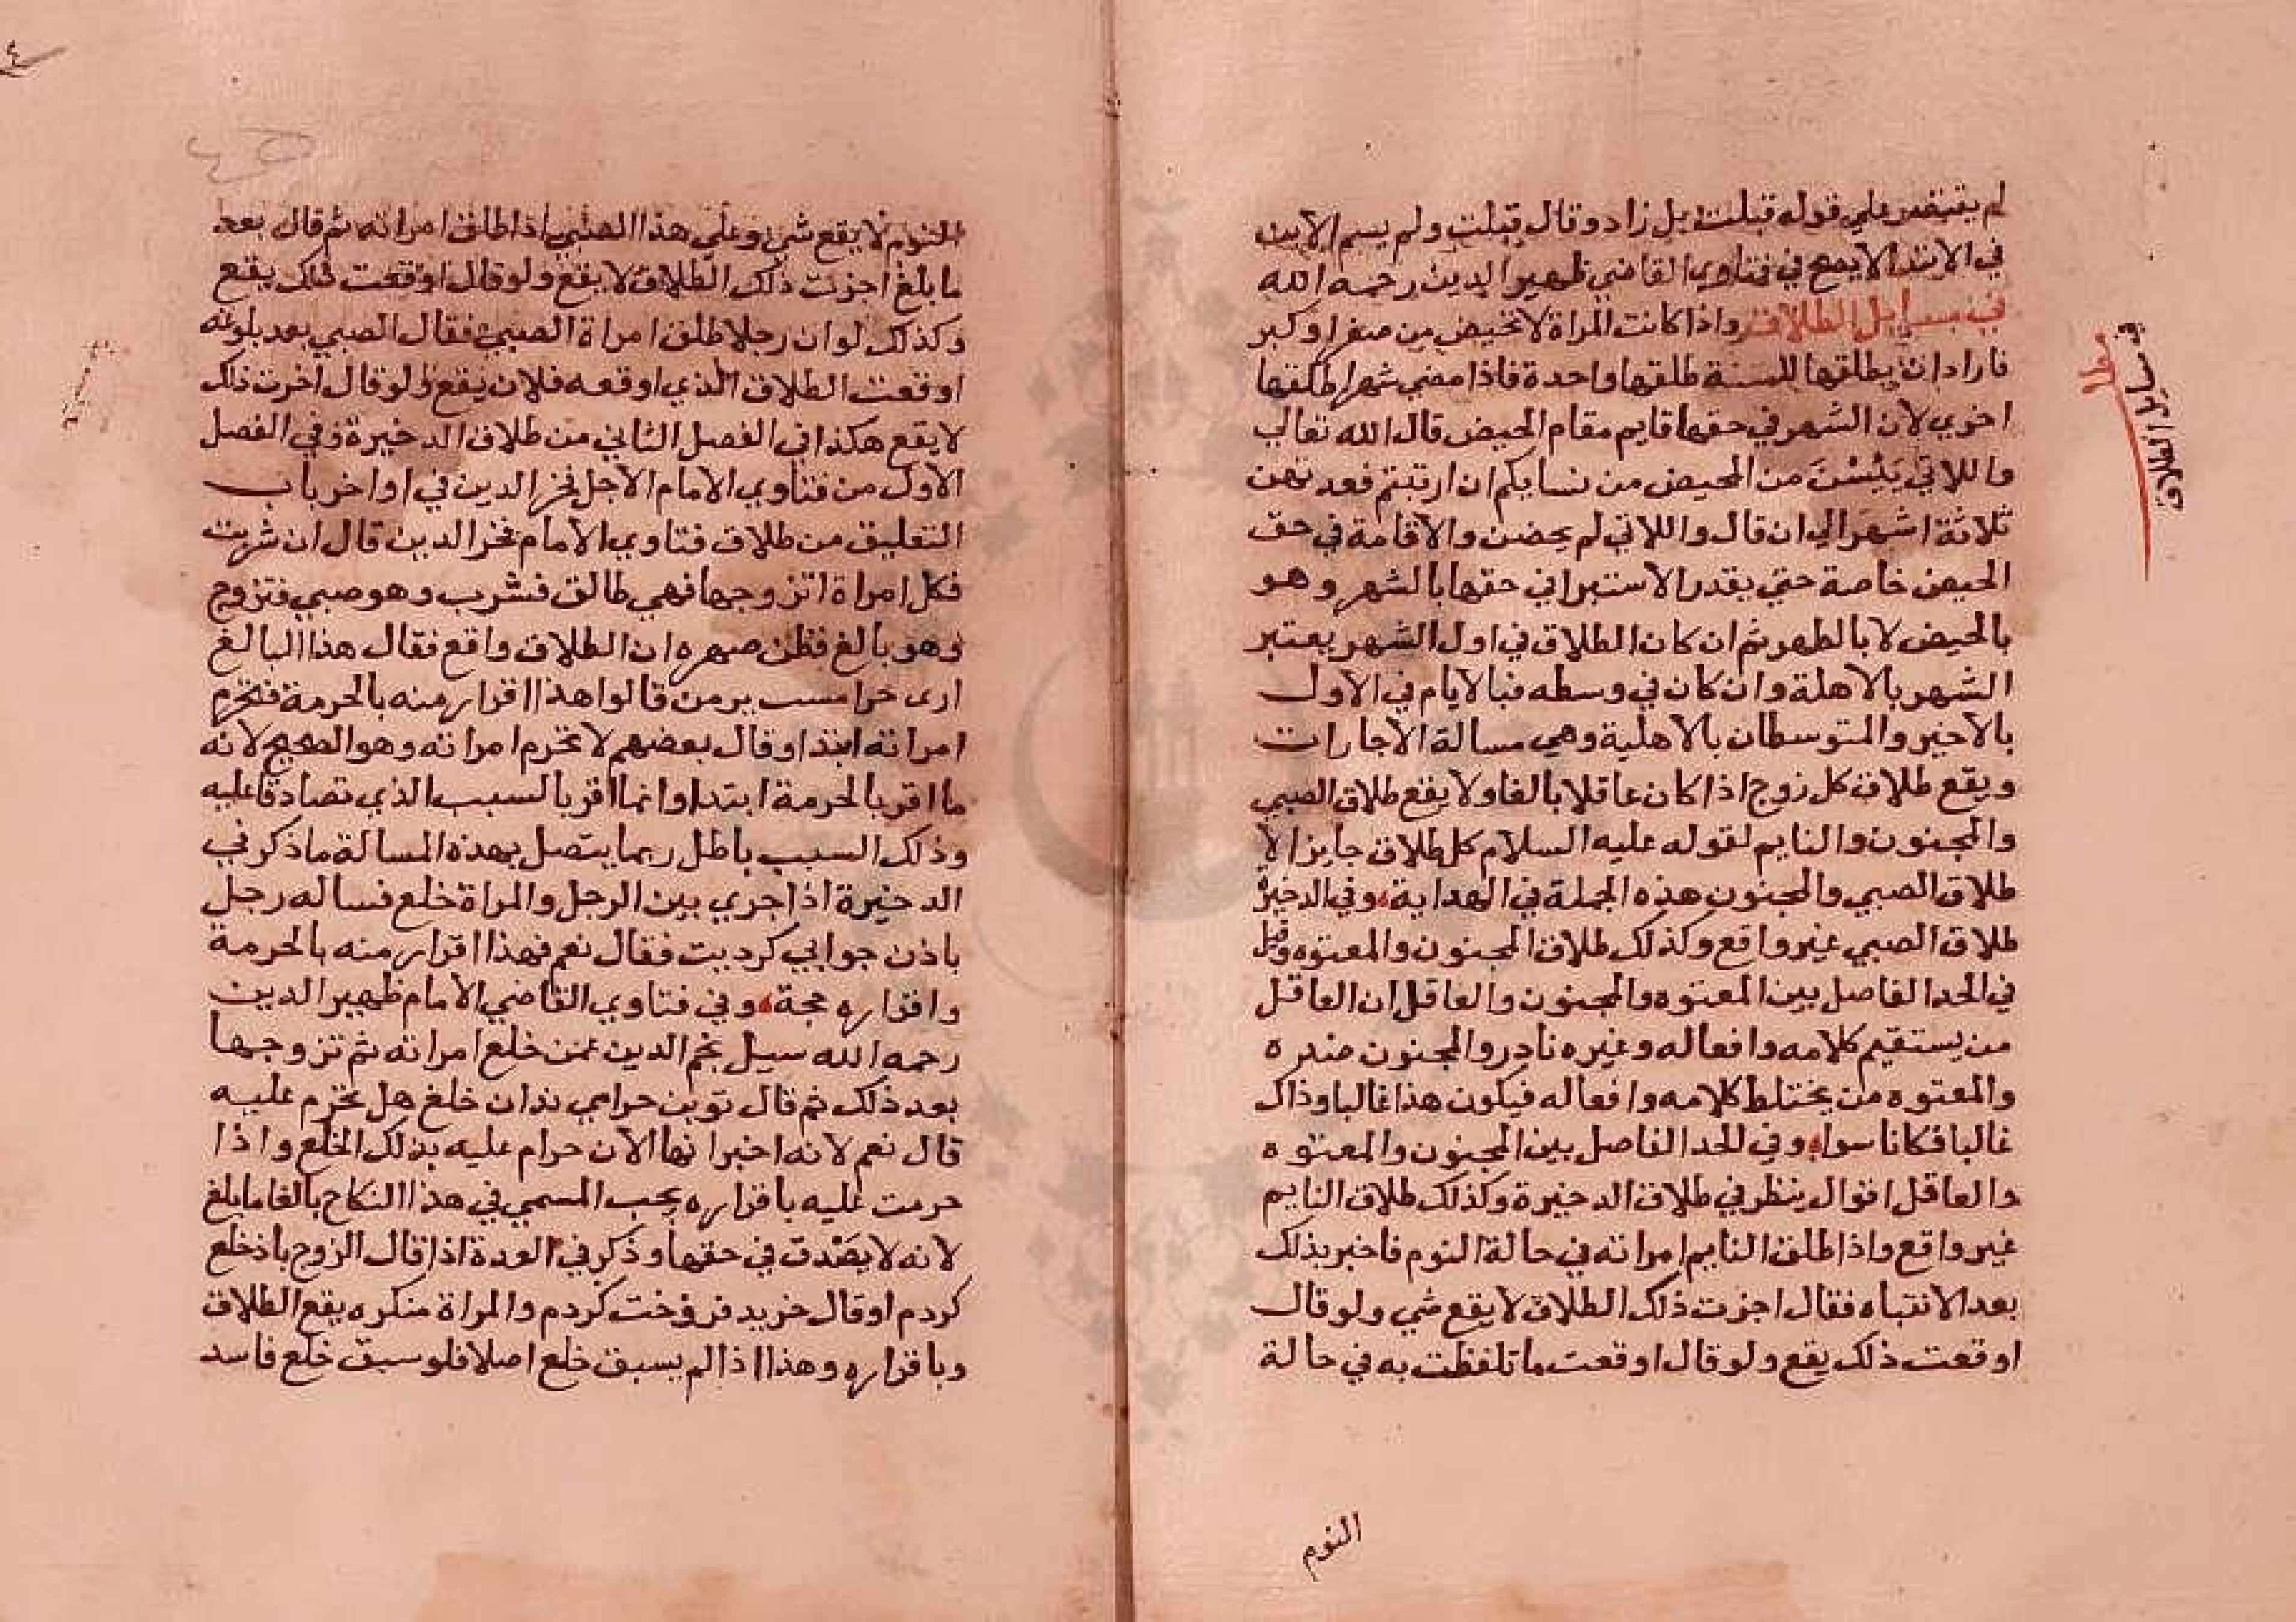 لم يقتصر علي قوله قبلت بل زاد وقال قبلت ولم يسم الابن
في الانتدا لا يصح في فتاوي القاضي ظهير الدين رحمه الله
في مسايل الطلاق واذا كانت المراة لا تحيض من صغر او كبر
فاراد ان يطلقها للسنة طلقها واحدة فاذا مضي شهر طلقها
اخري لان الشهر في حقها قايم مقام الحيض قال الله تعالي
واللاتي يَئِسْنَ من المحيض من نسايكم ان ارتبتم فعدتهن
ثلاثة اشهر الي ان قال واللاتي لم يحضن والاقامة في حق
الحيض خاصة حتي يقدر الاستبرا في حقها بالشهر وهو
بالحيض لا بالطهر ثم ان كان الطلاق في اول الشهر يعتبر
الشهر بالاهلة وان كان في وسطه فبالايام في الاول
بالاخير والمتوسطان بالاهلية وهي مسالة الاجارات
ويقع طلاق كل زوج اذا كان عاقلا بالغا ولا يقع طلاق الصبي
والمجنون والنايم لقوله عليه السلام كل طلاق جايز الا
طلاق الصبي والمجنون هذه الجملة في الهداية وفي الدخيرة
طلاق الصبي غير واقع وكذلك طلاق المجنون والمعتوه وقيل
في الحد الفاصل بين المعتوه والمجنون والعاقل ان العاقل
من يستقيم كلامه وافعاله وغيره نادر والمجنون ضده
والمعتوه من يختلط كلامه وافعاله فيكون هذا غالبا وذاك
غالبا فكانا سوا وفي الحد الفاصل بين المجنون والمعتوه
والعاقل اقوال ينظر في طلاق الدخيرة وكذلك طلاق النايم
غير واقع واذا طلق النايم امراته في حالة النوم فاخبر بذلك
بعد الانتباه فقال اجزت ذلك الطلاق لا يقع شي ولو قال
اوقعت ذلك يقع ولو قال اوقعت ما تلفظت به في حالة
النوم
في مسايل الطلاق
النوم لا يقع شي وعلي هذا الصبي اذا طلق امراته ثم قال بعد
ما بلغ اجزت ذلك الطلاق لا يقع ولو قال اوقعت ذلك يقع
وكذلك لو ان رجلا طلق امراة الصبي فقال الصبي بعد بلوغه
اوقعت الطلاق الذي اوقعه فلان يقع ولو قال اخرت ذلك
لا يقع هكذا في الفصل الثاني من طلاق الدخيرة وفي الفصل
الاول من فتاوي الامام الاجل فخر الدين في اواخر باب
التعليق من طلاق فتاوي الامام فخر الدين قال ان شربت
فكل امراة اتزوجها فهي طالق فشرب وهو صبي فتزوج
وهو بالغ فظن صهره ان الطلاق واقع فقال هذا البالغ
اري حرامست بر من قالوا هذا اقرار منه بالحرمة فتحرم
امراته ابتدا وقال بعضهم لا تحرم امراته وهو الصحيح لانه
ما اقر بالحرمة ابتدا وانما اقر بالسبب الذي تصادقا عليه
وذلك السبب باطل ربما يتصل بهذه المسالة ما ذكر في
الدخيرة اذا جري بين الرجل والمراة خلع فساله رجل
باذن جوابي كرديت فقال نعم فهذا اقرار منه بالحرمة
واقراره حجة وفي فتاوي القاضي الامام ظهير الدين
رحمه الله سيل نجم الدين عمن خلع امراته ثم تزوجها
بعد ذلك ثم قال توبن حرامي ندان خلع هل تحرم عليه
قال نعم لانه اخبر انها الان حرام عليه بذلك الخلع واذا
حرمت عليه باقراره يجب المسمي في هذا النكاح بالغا ما بلغ
لانه لا يصَدق في حقها وذكر في العدة اذا قال الزوج باذخلع
كردم او قال خريد فروخت كردم والمراة منكره يقع الطلاق
وباقراره وهذا اذا لم يسبق خلع اصلا فلو سبق خلع فاسد